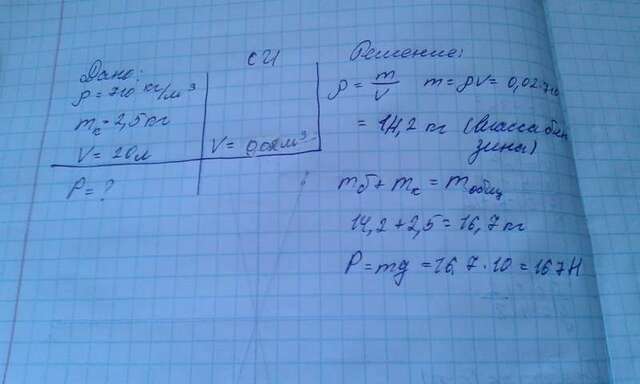 Дано:
ρ = 710 кг/м³
mк = 2,5 кг
V = 20л
P = ?
СИ
V = 0,02м³
Решение:
ρ = m/V m = ρV = 0,02·710
= 14,2 кг (масса бен
зина)
mб + mк = mобщ
14,2 + 2,5 = 16,7 кг
P = mg = 16,7 · 10 = 167Н